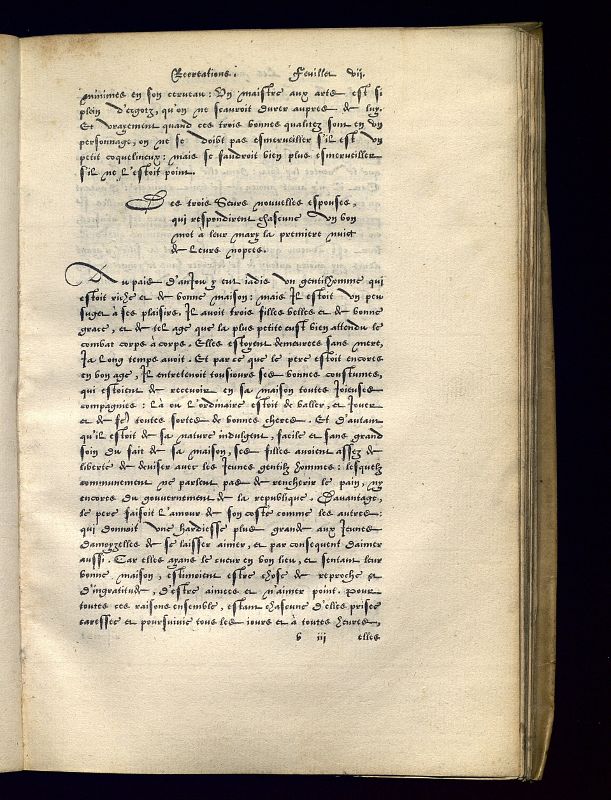 Recreations. Feuillet vij.
minimes en son cerveau: Un maistre aux arts est si
plein d'ergotz, qu'on ne scauroit durer aupres de luy.
Et vrayement quand ces trois bonnes qualitez sont en un
personnage, on ne se doibt pas esmerveiller s'il est un
petit coquelineux: mais se faudroit bien plus esmerveiller
s'il ne l'estoit point.
Des trois Seurs nouvelles espouses,
qui respondirent chascune un bon
mot à leur mary la premiere nuict
de leurs nopces.
Au païs d'anjou y eut iadis un gentilhomme qui
estoit riche et de bonne maison: mais Il estoit un peu
suget à ses plaisirs, Il avoit trois filles belles et de bonne
grace, et de tel age que la plus petite eust bien attendu le
combat corps à corps. Elles estoyent demeurees sans mere,
Ja long temps avoit. Et par ce que le pere estoit encores
en bon age, Il entretenoit tousiours ses bonnes coustumes,
qui estoient de recevoir en sa maison toutes Joieuses
compagnies: là ou l'ordinaire estoit de baller, et Jouer
et de toutes sortes de bonnes cheres. Et d'autant
qu'il estoit de sa nature indulgent, facile et sans grand
soin du fait de sa maison, ses filles avoient assez de
liberté de deviser avec les Jeunes gentilz hommes: lesquelz
communement ne parlent pas de rencherir le pain, ny
encores du gouvernement de la republique. Davantage,
le pere faisoit l'amour de son costé comme les autres:
qui donnoit une hardiesse plus grande aux Jeunes
damoyzelles de se laisser aimer, et par consequent d'aimer
aussi. Car elles ayans le cueur en bon lieu, et sentant leur
bonne maison, estimoient estre chose de reproche et
d'ingratitude, d'estre aimees et n'aimer point. pour
toutes ces raisons ensemble, estant chascune d'elles prisee
caressee et poursuivie tous les iours et à toutes heures,
b iii elles